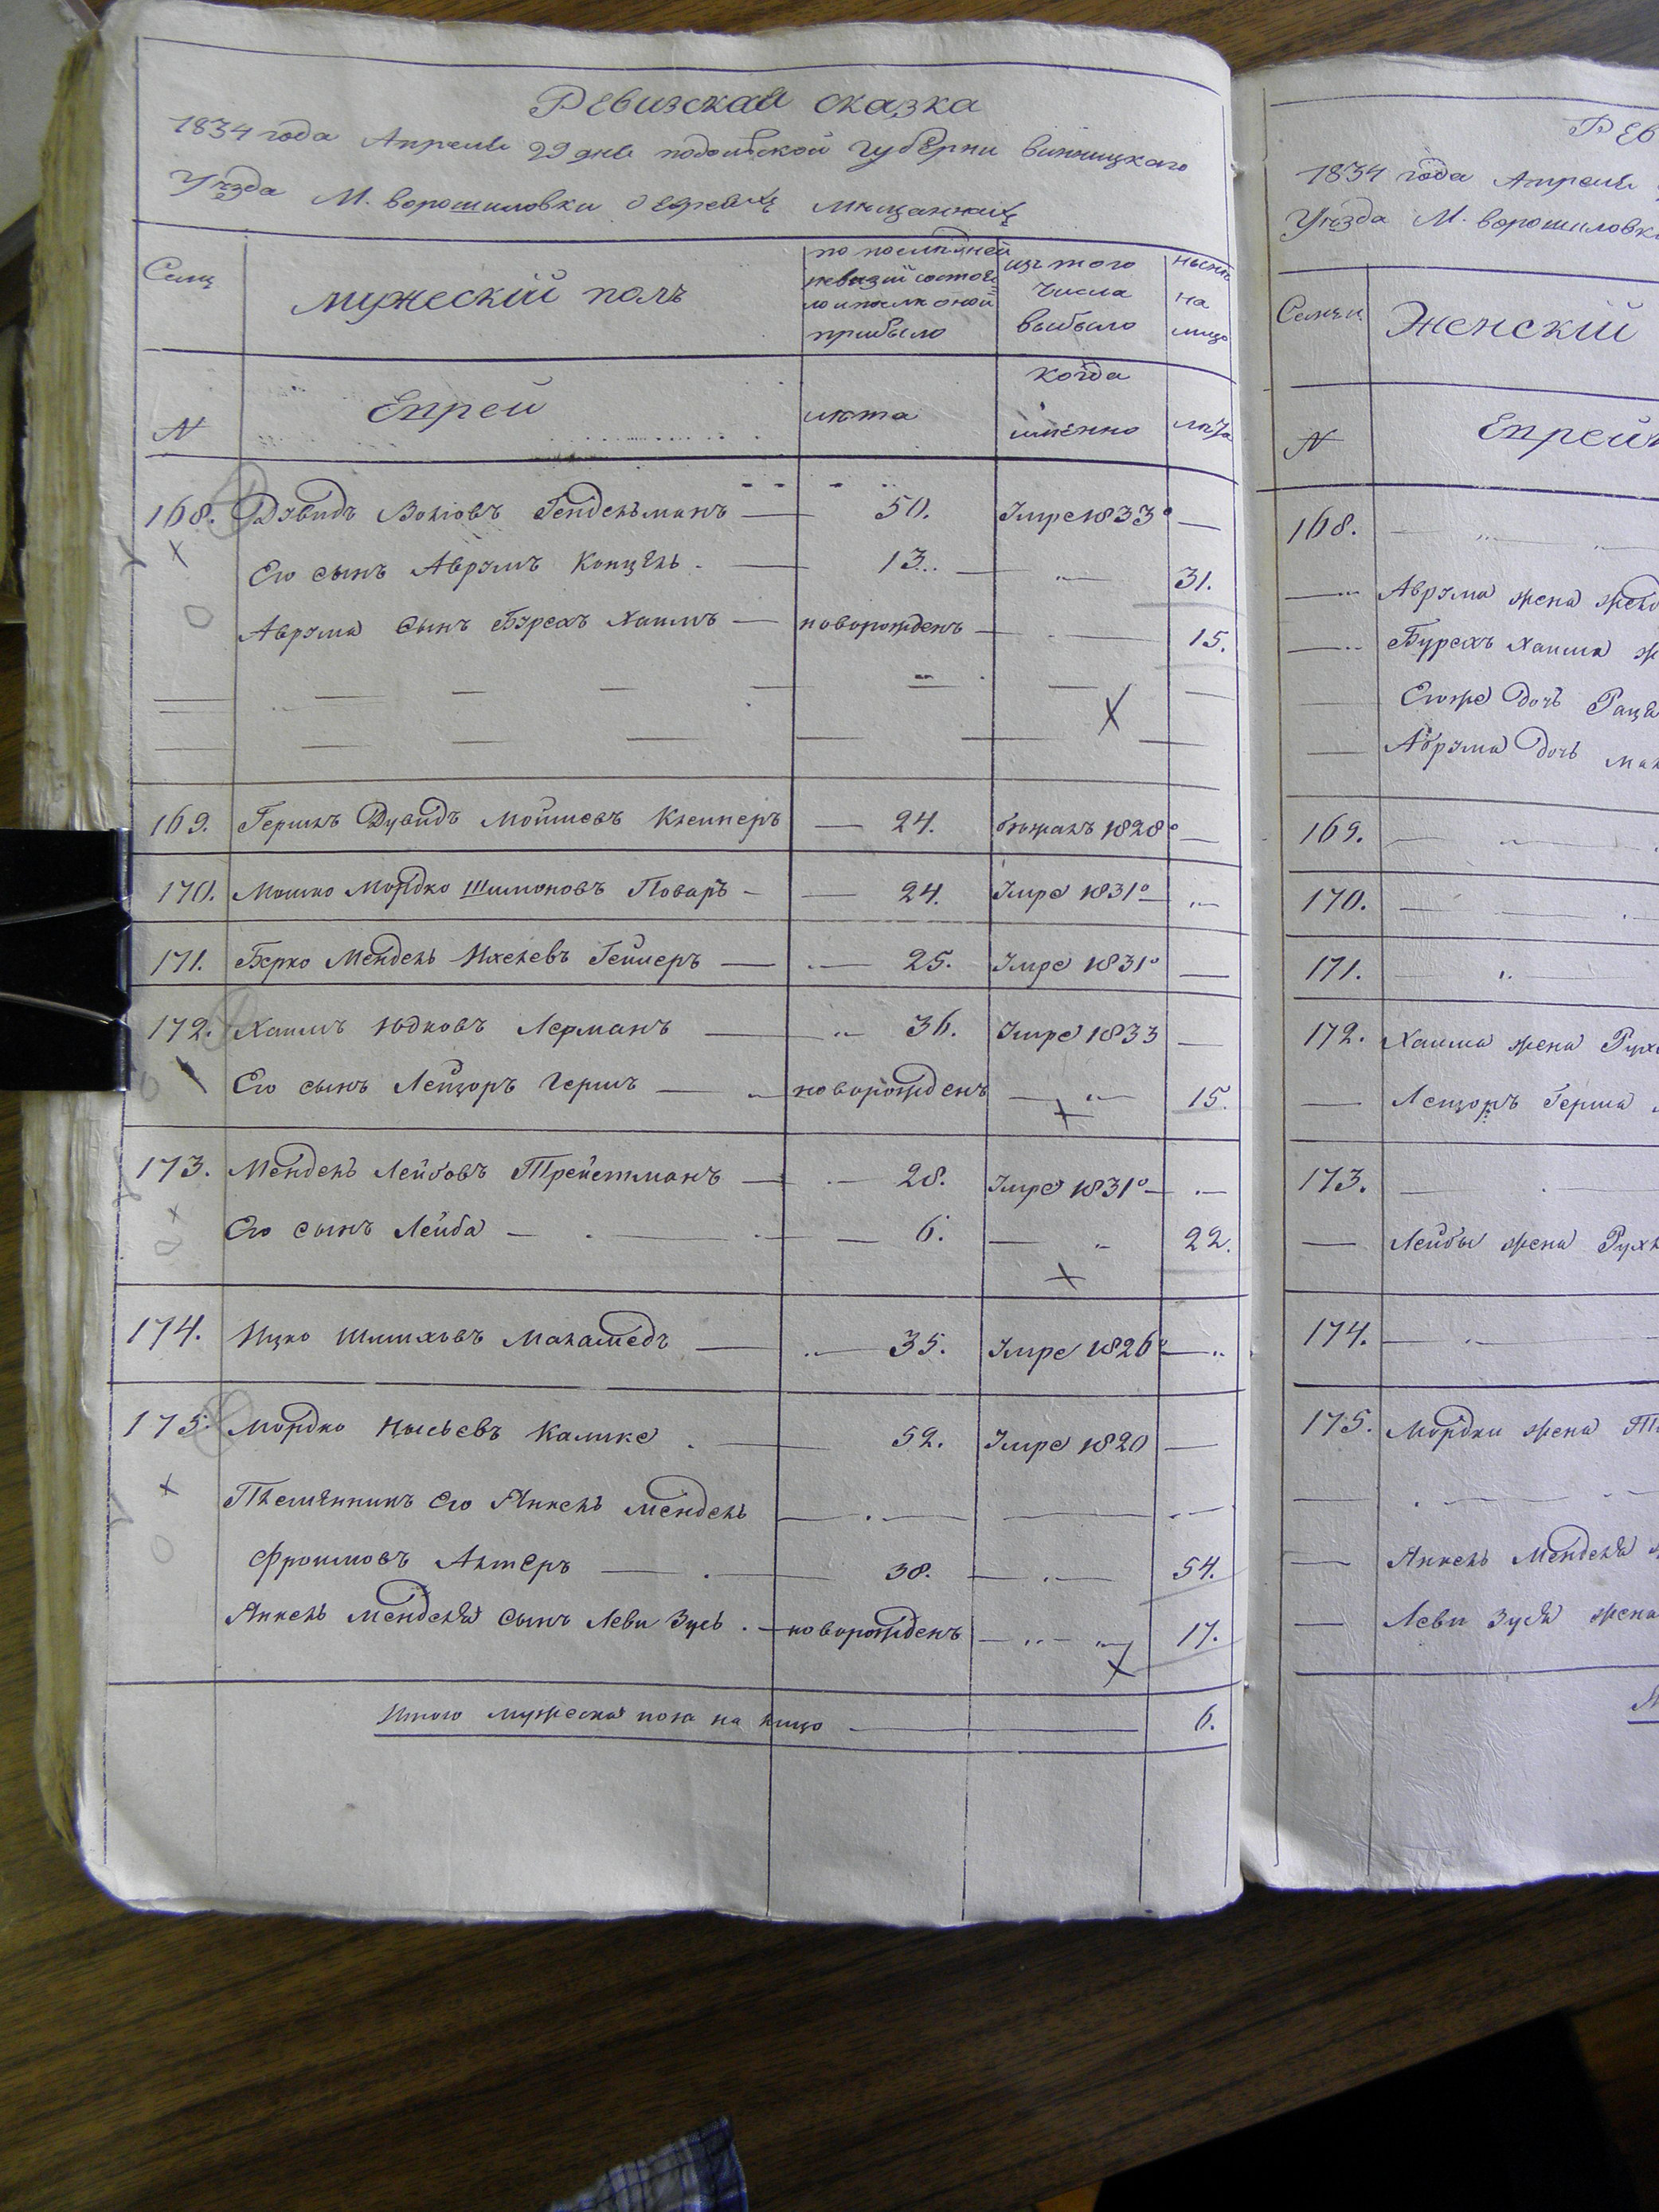 Ревизская сказка
1834 года Апреля 29 дня подольской губерни винницкаго
Уѣзда М. ворошиловки о евреяхъ мѣщанахъ
Семьи
мужескій полъ
по послѣдней ревизіи состояло и послѣ оной прибыло
изъ того числа выбыло
нынѣ на лицо
N
Евреи
лѣта
когда имѣнно
лѣта
168. Дувидъ Волковъ Гендельманъ — 50. Умре 1833° —
Его сынъ Аврумъ Копцель — 13. — 31.
Аврума Сынъ Бурехъ Хаимъ — новорожденъ — 15.
169. Гершъ Дувидъ Мошковъ Клейнеръ — 24. бѣжалъ 1828° —
170. Мошко Мордко Шимоновъ Поваръ — 24. Умре 1831° —
171. Берко Мендель Ихелевъ Геймеръ — 25. Умре 1831° —
172. Хаимъ Юдковъ Лерманъ — 36. Умре 1833 —
Его сынъ Лейзоръ Гершъ — новорожденъ — 15.
173. Мендель Лейбовъ Трейетманъ — 28. Умре 1831° —
Его сынъ Лейба — 6. — 22.
174. Ицко Шмилховъ Маламедъ — 35. Умре 1826° —
175. Мордко Иосьевъ Калике — 52. Умре 1820 —
Племянникъ Его Янкель Мендель
Фроимовъ Актеръ — 38. — 54.
Янкель Менделя Сынъ Леви Зусь — новорожденъ — 17.
Итого мужеска пола на лицо — 6.
РЕВ
1834 года Апреля
Уѣзда М. ворошиловк
Семьи
Женскій
N
Еврей
168.
Аврума жена
Бурехъ Хаима
Егоже Дочь
Аврума Дочь
169.
170.
171.
172. Хаима жена Рух
Лейзоръ Герша
173.
Лейбы жена Рух
174.
175. Мордки жена
Янкель Менделя
Леви Зуся жена